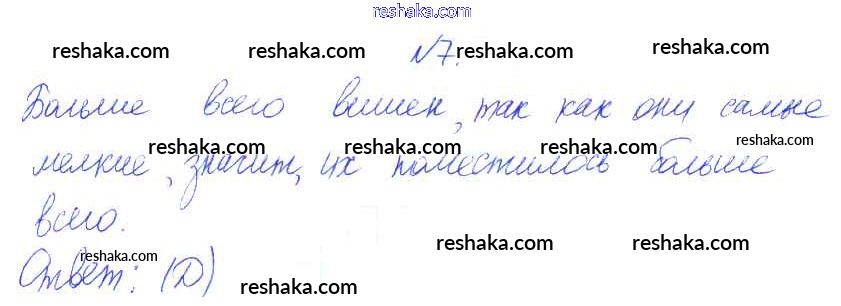 reshaka.com
reshaka.com reshaka.com №7. reshaka.com reshaka.com
Больше всего вишен, так как они самые
reshaka.com reshaka.com reshaka.com
мелкие, значит, их поместилось больше
всего.
reshaka.com reshaka.com reshaka.com
Ответ: (D)
reshaka.com